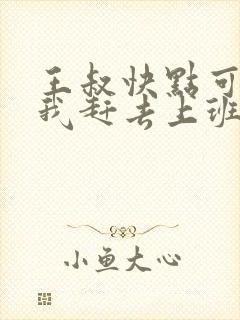 王叔快點可
我赶去上班
小鱼大心